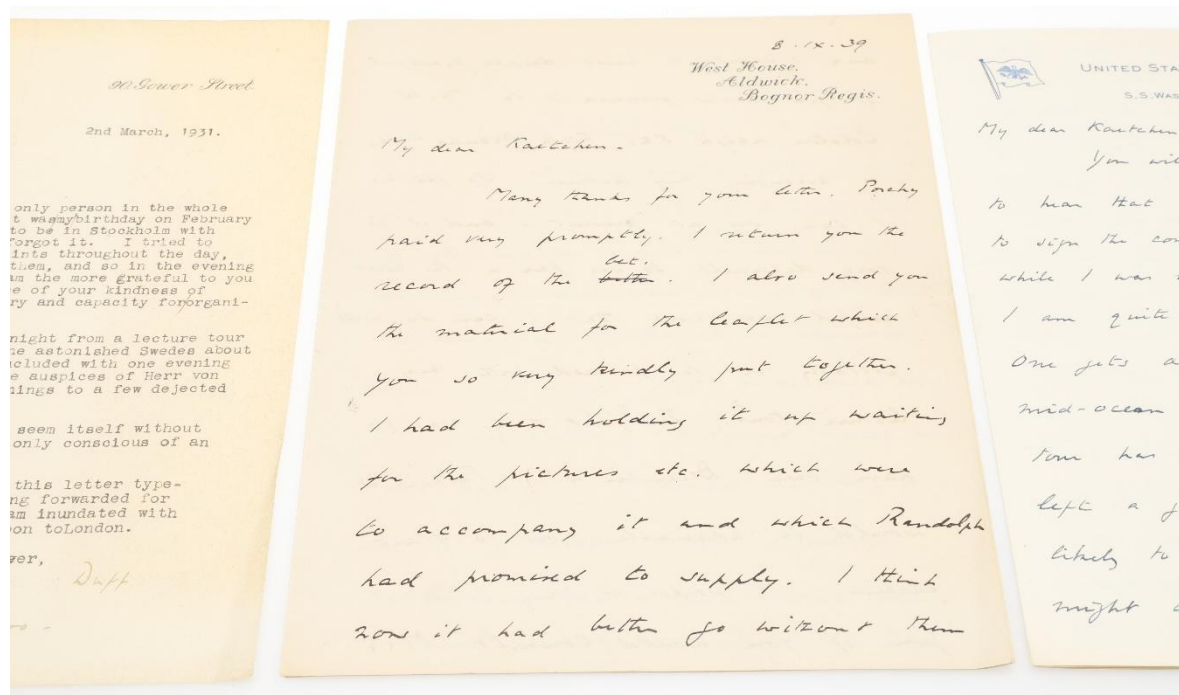 90 Gower Street.
2nd March, 1931.
only person in the whole
t wasmybirthday on February
to be in Stockholm with
forgot it. I tried to
ints throughout the day,
them, and so in the evening
am the more grateful to you
e of your kindness of
ry and capacity fororgani-
night from a lecture tour
he astonished Swedes about
ncluded with one evening
e auspices of Herr von
nings to a few dejected
seem itself without
only conscious of an
this letter type-
ng forwarded for
am inundated with
on toLondon.
ver,
Duff
8.IX.39
West House,
Aldwick,
Bognor Regis.
My dear Kaetchen.
Many thanks for your letter. Porchy
paid very promptly. I return you the
bet.
record of the better. I also send you
the material for the leaflet which
you so very kindly put together.
I had been holding it up waiting
for the pictures etc. which were
to accompany it and which Randolph
had promised to supply. I think
now it had better go without them
UNITED STA
S.S. WAS
My dear Kaetchen
You wil
to hear that
to sign the con
while I was
I am quite
One gets a
mid-ocean
tour has
left a g
likely to
might a